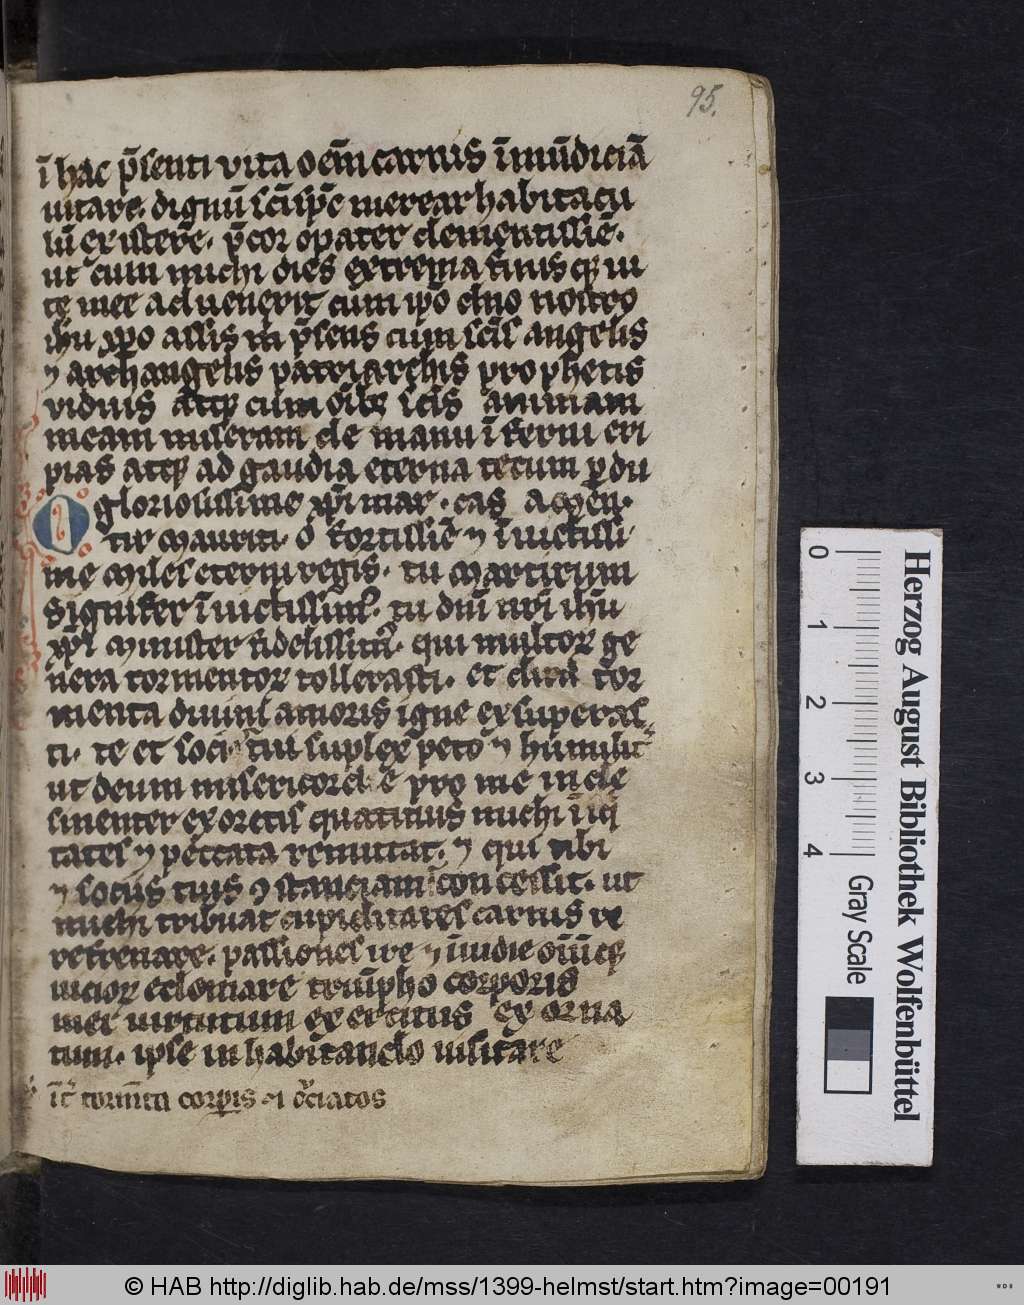 95.
ī hac p̄senti vita oēm carnis īmūdiciā
uitare. dignū sc̄i sp̄c merear habitacu
lū existere. p̄cor o pater clementissiē.
ut cum michi dies extrema finisq; ui
te mee aduenerit cum ip̄o dn̄o nostro
ih̄u xp̄o assis m̄ p̄sens cum sc̄is angelis
⁊ archangelis patriarchis prophetis
viduis atq; cum oīb; sc̄is animam
meam miseram de manu īferni eri
pias atq; ad gaudia eterna tecum p̱du
gloriosissime xp̄i mar. cas amen.
tir Mauriti. O fortissiē ⁊ īuictissi
me Miles eterni regis. tu Martirum
signifer īuictissime. tu dn̄i nr̄i ih̄u
xp̄i Minister fidelissime. qui multoꝝ ge
nera tormentoꝝ tollerasti. et dum tor
menta diuini amoris igne exsuperas
ti. te et soci tui suplex peto ⁊ humilit̄
ut deum misericordie pro me incle
sinenter exoretis quatinus michi iiq
tates ⁊ peccata remittat. ⁊ qui tibi
⁊ socijs tuis ꝯstanciam concessit. ut
michi tribuat cupiditates carnis re
frenare. passiones ire ⁊ īuidie oīūq;
uicioꝝ edomare triūpho corporis
mei uirtutum exercitus exorna
tum. ipse inhabitando uisitare
īt̄ torm̄ta corp̱is ⁊ cciatos
0 1 2 3 4
Gray Scale
Herzog August Bibliothek Wolfenbüttel
© HAB http://diglib.hab.de/mss/1399-helmst/start.htm?image=00191